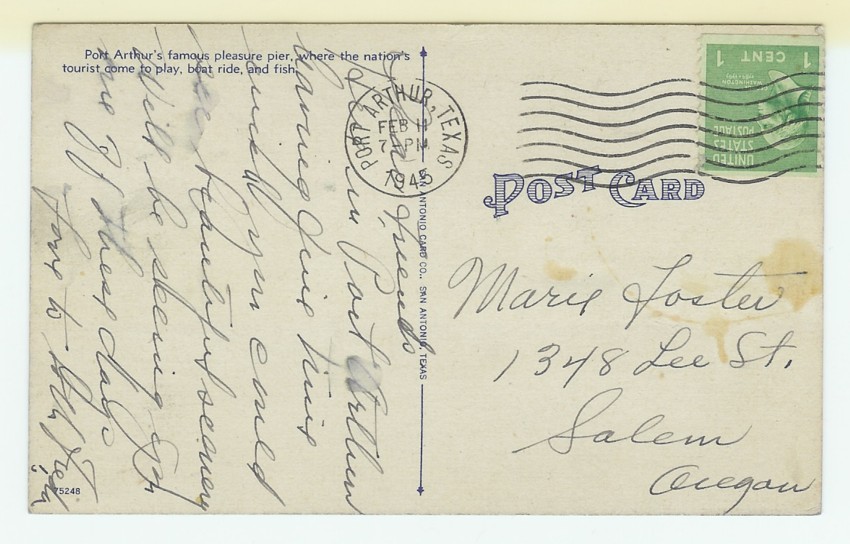 Port Arthur's famous pleasure pier, where the nation's
tourist come to play, boat ride, and fish.
Dear Friends
Here in Port Arthur
having fine time
wish you could
see beautiful scenery
Will be seeing you
one of these days
Love to All
75248
SAN ANTONIO CARD CO., SAN ANTONIO, TEXAS
PORT ARTHUR, TEXAS
FEB 11
7-PM
1945
1 CENT 1
WASHINGTON
UNITED
STATES
POSTAGE
POST CARD
Marie Foster
1348 Lee St.
Salem
Oregon